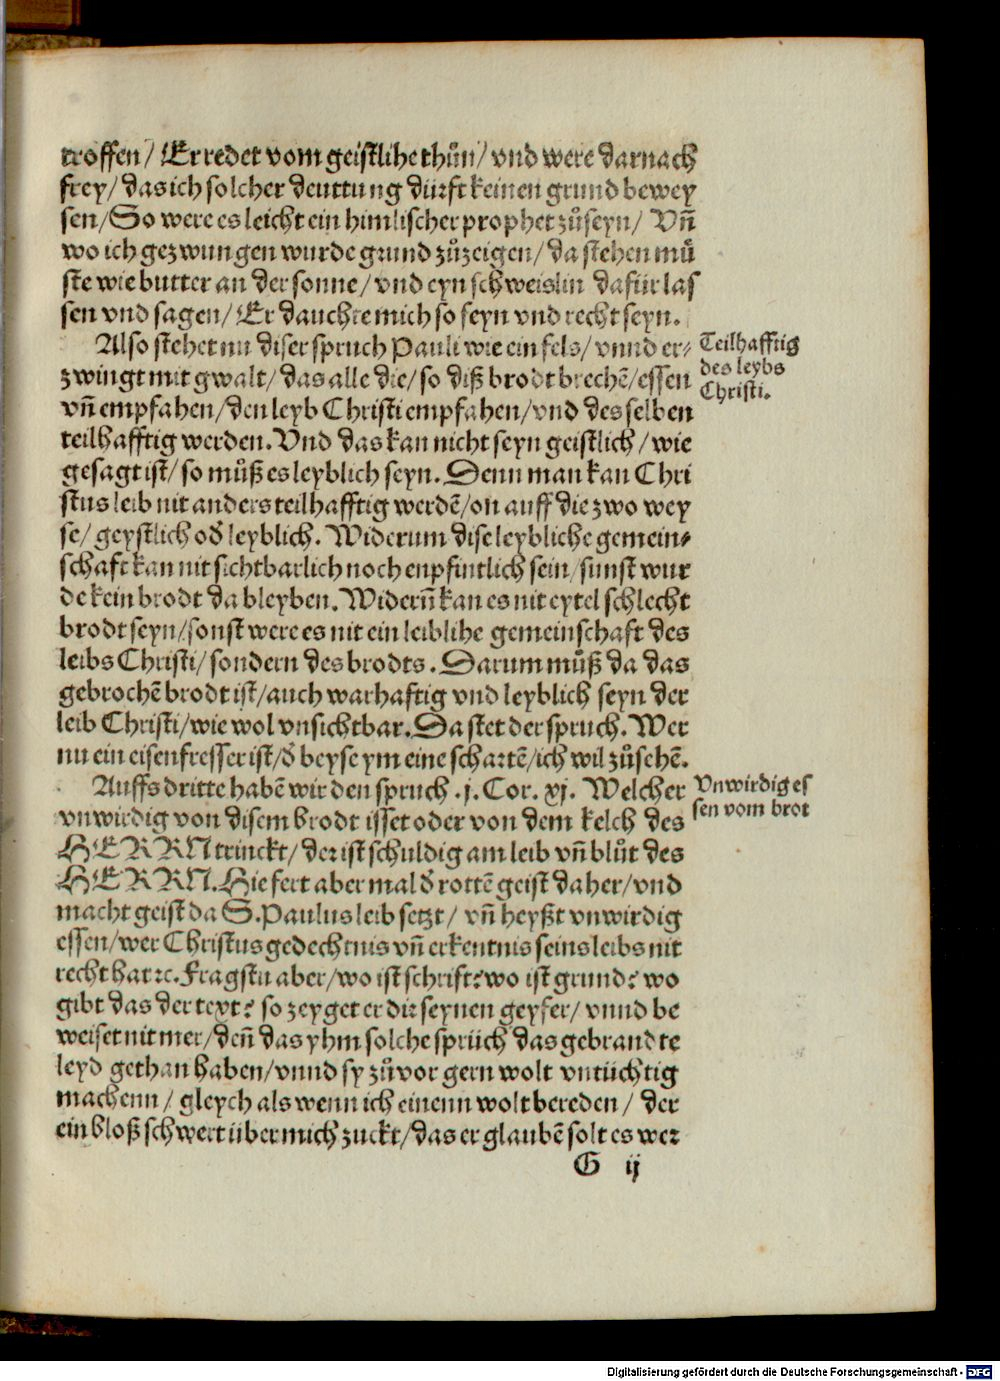 troffen/ Er redet vom geistlihe thůn/ vnd were darnach
frey/ das ich solcher deuttung dürft keinen grund bewey
sen/ So were es leicht ein himlischer prophet zůseyn/ Vn̄
wo ich gezwungen wurde grund zůzeigen/ da stehen mů
ste wie butter an der sonne/ vnd eyn schweislin dafür las
sen vnd sagen/ Er dauchte mich so seyn vnd recht seyn.
Also stehet nu diser spruch Pauli wie ein fels/ vnnd er-
zwingt mit gwalt/ das alle die/ so diß brodt brechē/ essen
vn̄ empfahen/ den leyb Christi empfahen/ vnd des selben
teilhafftig werden. Vnd das kan nicht seyn geistlich/ wie
gesagt ist/ so můß es leyblich seyn. Denn man kan Chri
stus leib nit anders teilhafftig werdē/ on auff die zwo wey
se/ geystlich od̄ leyblich. Widerum dise leybliche gemein-
schaft kan nit sichtbarlich noch enpfintlich sein/ sunst wur
de kein brodt da bleyben. Widerūn kan es nit eytel schlecht
brodt seyn/ sonst were es nit ein leiblihe gemeinschaft des
leibs Christi/ sondern des brodts. Darum můß da das
gebrochē brodt ist/ auch warhaftig vnd leyblich seyn der
leib Christi/ wie wol vnsichtbar. Da stet der spruch. Wer
nu ein eisenfresser ist/ d̄ beyse ym eine schartē/ ich wil zůsehē.
Auffs dritte habē wir den spruch .j. Cor. xj. Welcher
vnwirdig von disem brodt isset oder von dem kelch des
HERRN trinckt/ der ist schuldig am leib vn̄ blůt des
HERRN. Hie fert aber mal d̄ rottē geist daher/ vnd
macht geist da S. Paulus leib setzt/ vn̄ heyßt vnwirdig
essen/ wer Christus gedechtnis vn̄ erkentnis seins leibs nit
recht hat ꝛc. Fragstu aber/ wo ist schrift? wo ist grund? wo
gibt das der text? so zeyget er dir seynen geyfer/ vnnd be
weiset nit mer/ den̄ das yhm solche sprüch das gebrandte
leyd gethan haben/ vnnd sy zůvor gern wolt vntüchtig
machenn/ gleych als wenn ich einenn wolt bereden/ der
ein bloß schwert über mich zuckt/ das er glaubē solt es wer
G ij
Teilhafftig
des leybs
Christi.
Vnwirdig es
sen vom brot
Digitalisierung gefördert durch die Deutsche Forschungsgemeinschaft - DFG